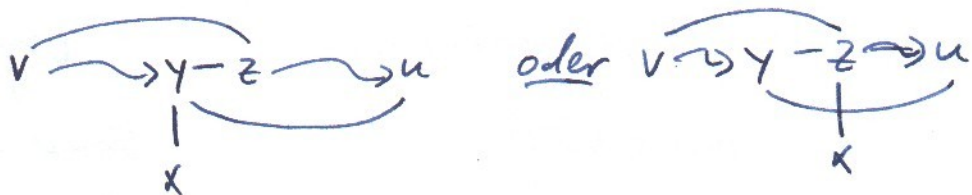 v y z u oder v y z u
x x